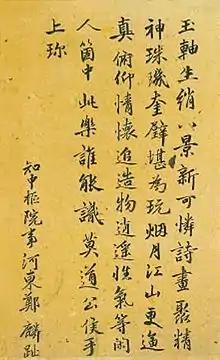 玉軸生綃八景新可憐詩畫聚精
神珠璣奎璧堪為玩烟月江山更逼
真俯仰情懷追造物逍遙性氣等閑
人箇中此樂誰能識莫道公侯手
上珍
知中樞院事河東鄭麟趾